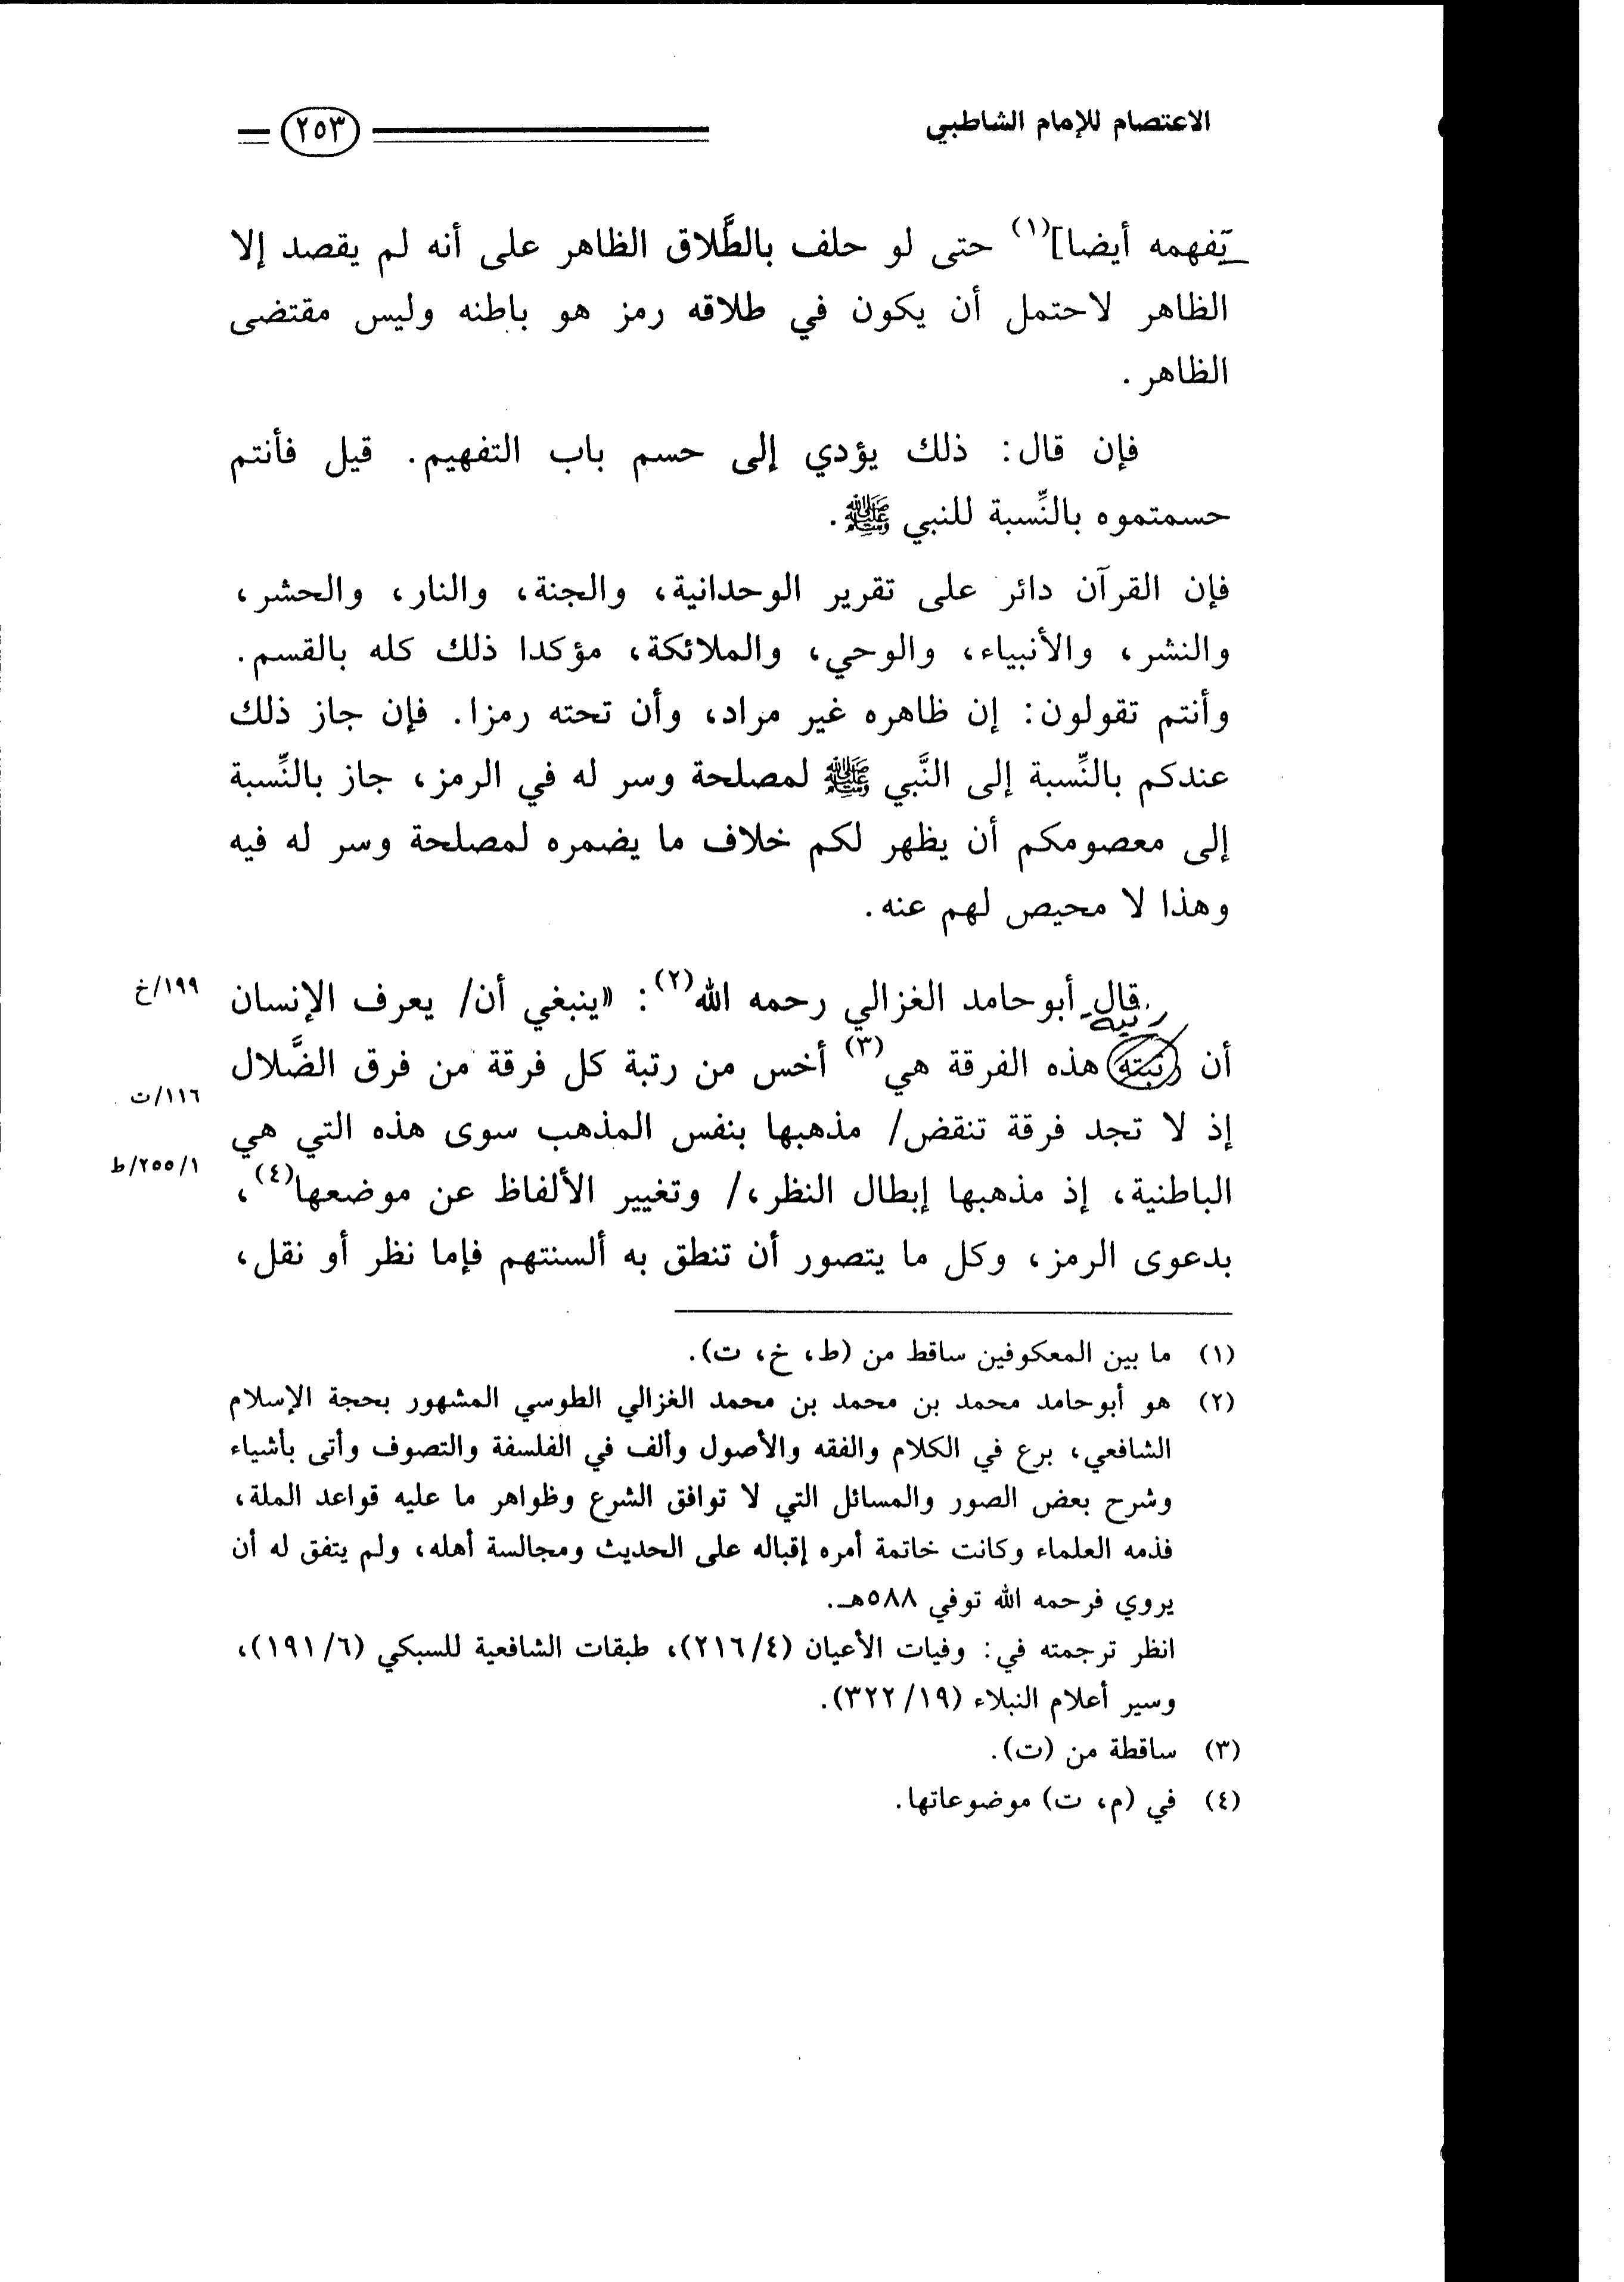 الاعتصام للإمام الشاطبي
٢٥٣
يتفهمه أيضا](١) حتى لو حلف بالطَّلاق الظاهر على أنه لم يقصد إلا
الظاهر لاحتمل أن يكون في طلاقه رمز هو باطنه وليس مقتضى
الظاهر.
فإن قال: ذلك يؤدي إلى حسم باب التفهيم. قيل فأنتم
حسمتموه بالنِّسبة للنبي ﷺ.
فإن القرآن دائر على تقرير الوحدانية، والجنة، والنار، والحشر،
والنشر، والأنبياء، والوحي، والملائكة، مؤكدا ذلك كله بالقسم.
وأنتم تقولون: إن ظاهره غير مراد، وأن تحته رمزا. فإن جاز ذلك
عندكم بالنِّسبة إلى النَّبي ﷺ لمصلحة وسر له في الرمز، جاز بالنِّسبة
إلى معصومكم أن يظهر لكم خلاف ما يضمره لمصلحة وسر له فيه
وهذا لا محيص لهم عنه.
قال أبوحامد الغزالي رحمه الله(٢): «ينبغي أن/ يعرف الإنسان
١٩٩/خ
رتبة
أن رتبته هذه الفرقة هي(٣) أخس من رتبة كل فرقة من فرق الضَّلال
١١٦/ت
إذ لا تجد فرقة تنقض/ مذهبها بنفس المذهب سوى هذه التي هي
٢٥٥/١/ط
الباطنية، إذ مذهبها إبطال النظر،/ وتغيير الألفاظ عن موضعها(٤)،
بدعوى الرمز، وكل ما يتصور أن تنطق به ألسنتهم فإما نظر أو نقل،
(١) ما بين المعكوفين ساقط من (ط، خ، ت).
(٢) هو أبوحامد محمد بن محمد بن محمد الغزالي الطوسي المشهور بحجة الإسلام
الشافعي، برع في الكلام والفقه والأصول وألف في الفلسفة والتصوف وأتى بأشياء
وشرح بعض الصور والمسائل التي لا توافق الشرع وظواهر ما عليه قواعد الملة،
فذمه العلماء وكانت خاتمة أمره إقباله على الحديث ومجالسة أهله، ولم يتفق له أن
يروي فرحمه الله توفي ٥٨٨هـ.
انظر ترجمته في: وفيات الأعيان (٢١٦/٤)، طبقات الشافعية للسبكي (١٩١/٦)،
وسير أعلام النبلاء (٣٢٢/١٩).
(٣) ساقطة من (ت).
(٤) في (م، ت) موضوعاتها.